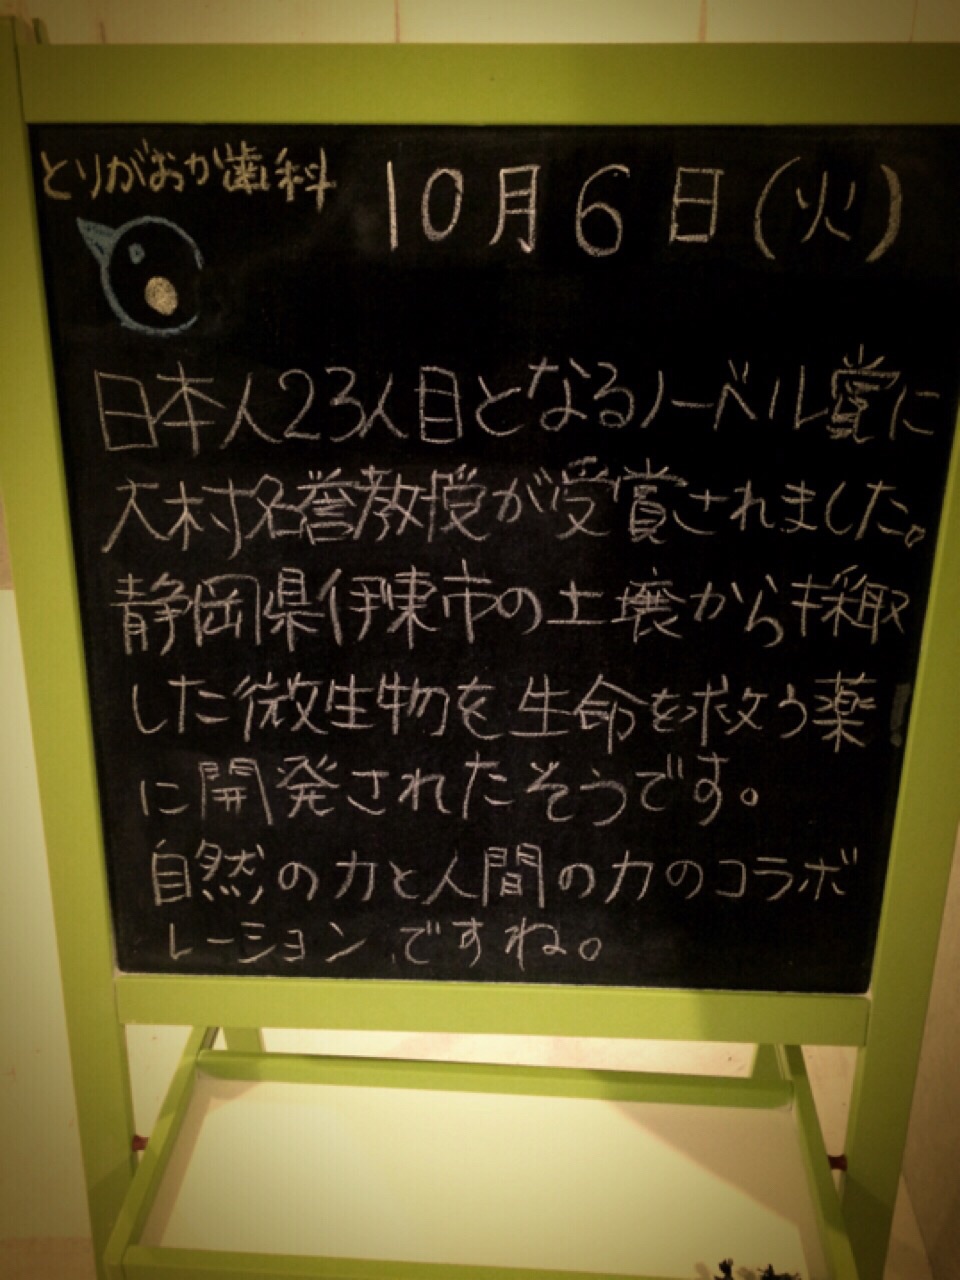 とりがおか歯科
10月6日(火)
日本人23人目となるノーベル賞に
大村名誉教授が受賞されました。
静岡県伊東市の土壌から採取
した微生物を生命を救う薬
に開発されたそうです。
自然の力と人間の力のコラボ
レーションですね。